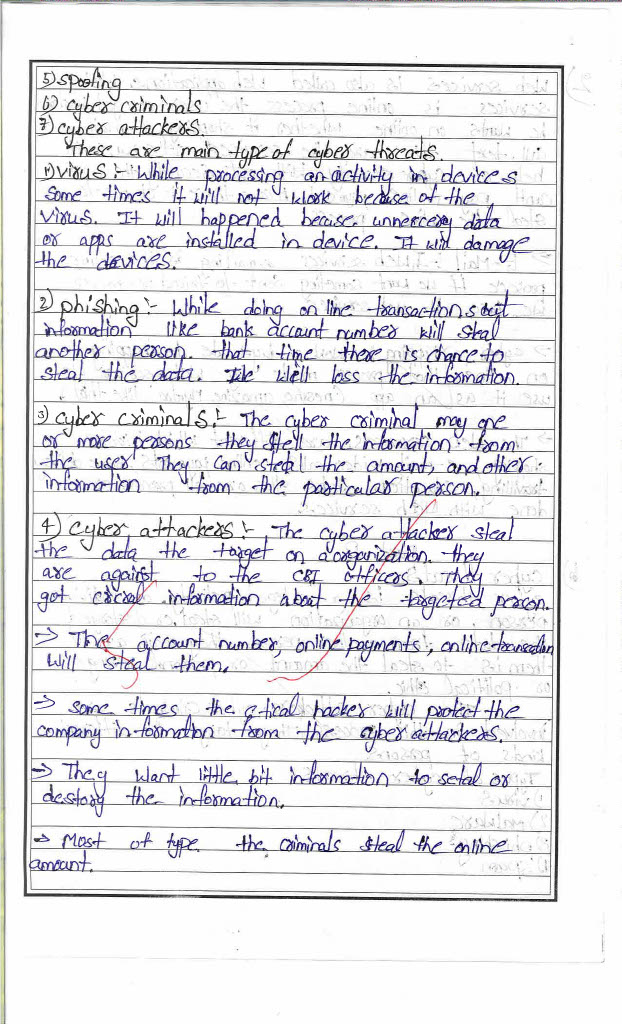 5) spoofing
6) cyber criminals
7) cyber attackers.
These are main type of cyber threats.
1) virus :- While processing an activity in devices
Some times it will not work becuse of the
virus. It will happened becuse unnercerey data
or apps are installed in device. It will damage
the devices.
2) phishing :- While doing on line transactions
information like bank account number will steal
another person. that time there is chance to
steal the data. We will loss the information.
3) cyber criminals :- The cyber criminal may one
or more persons they stell the information from
the user They can steal the amount, and other
information from the particular person.
4) Cyber attackers :- The cyber attacker steal
the data the target on a organization. they
are against to the CBI officers. They
got crcial information about the targeted person.
→ The account number, online payments, online transaction
will steal them.
→ some times the etical hacker will protect the
company information from the cyber attackers.
→ They want little bit information to setal or
destory the information.
→ Most of type the criminals steal the online
amount.